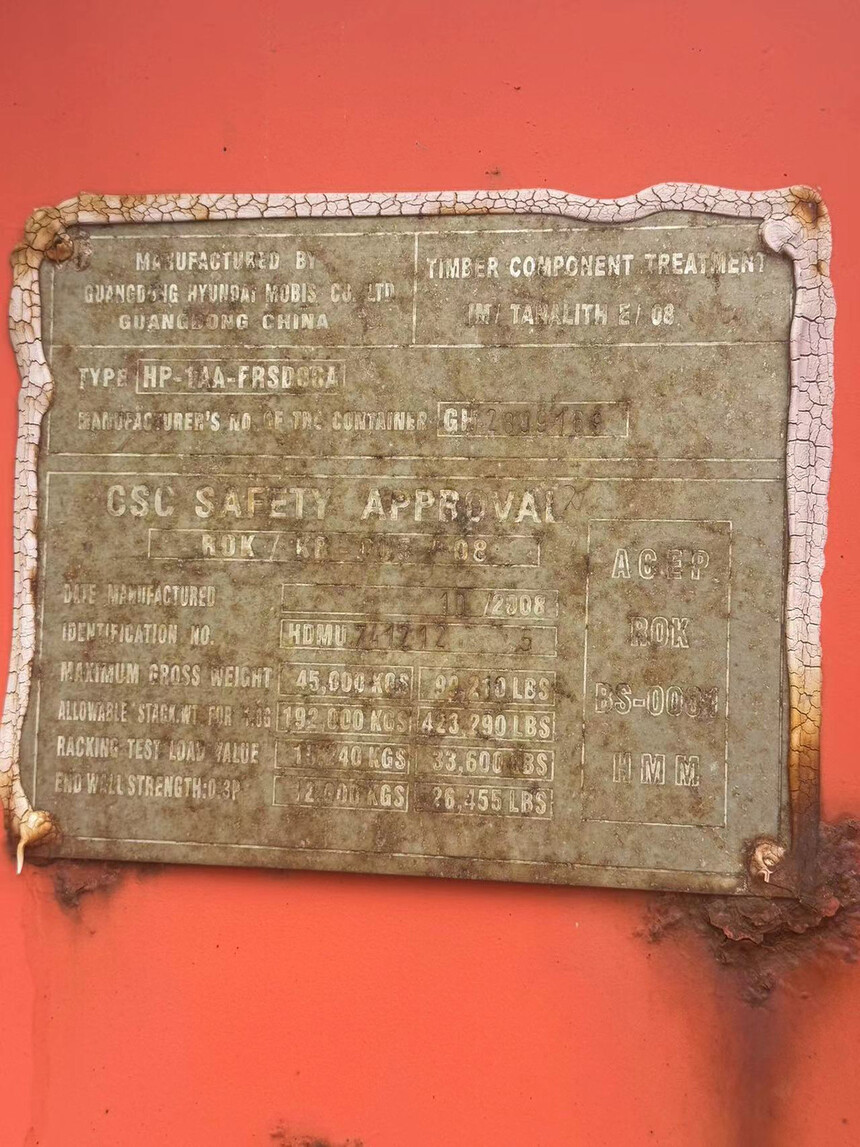 MANUFACTURED BY
GUANGDONG HYUNDAI MOBIS CO. LTD
GUANGDONG CHINA
TIMBER COMPONENT TREATMENT
IM/ TANALITH E/ 08
TYPE
MANUFACTURER'S NO. OF THE CONTAINER
CSC SAFETY APPROVAL
ROK / KR / 08
DATE MANUFACTURED 10 /2008
IDENTIFICATION NO. HDMU
MAXIMUM GROSS WEIGHT 45,000 KGS 99,210 LBS
ALLOWABLE STACK.WT. FOR 192,000 KGS 423,290 LBS
RACKING TEST LOAD VALUE 15,240 KGS 33,600 LBS
END WALL STRENGTH:0.3P 12,000 KGS 26,455 LBS
ACEP
ROK
HMM